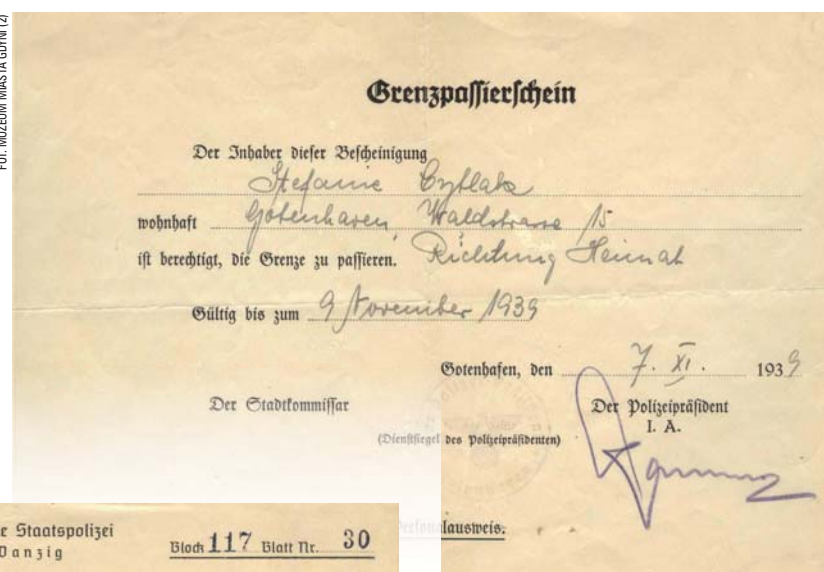 FOT. MUZEUM MIASTA GDYNI (2)
Grenzpassierschein
Der Inhaber dieser Bescheinigung
Stefanie Cytlak
wohnhaft Gotenhaven, Waldstrasse 15
ist berechtigt, die Grenze zu passieren. Richtung Heimat
Gültig bis zum 9 November 1939
Gotenhafen, den 7. XI. 1939
Der Stadtkommissar
Der Polizeipräsident
I. A.
(Dienstsiegel des Polizeipräsidenten)
lausweis.
e Staatspolizei
Danzig
Block 117 Blatt Nr. 30